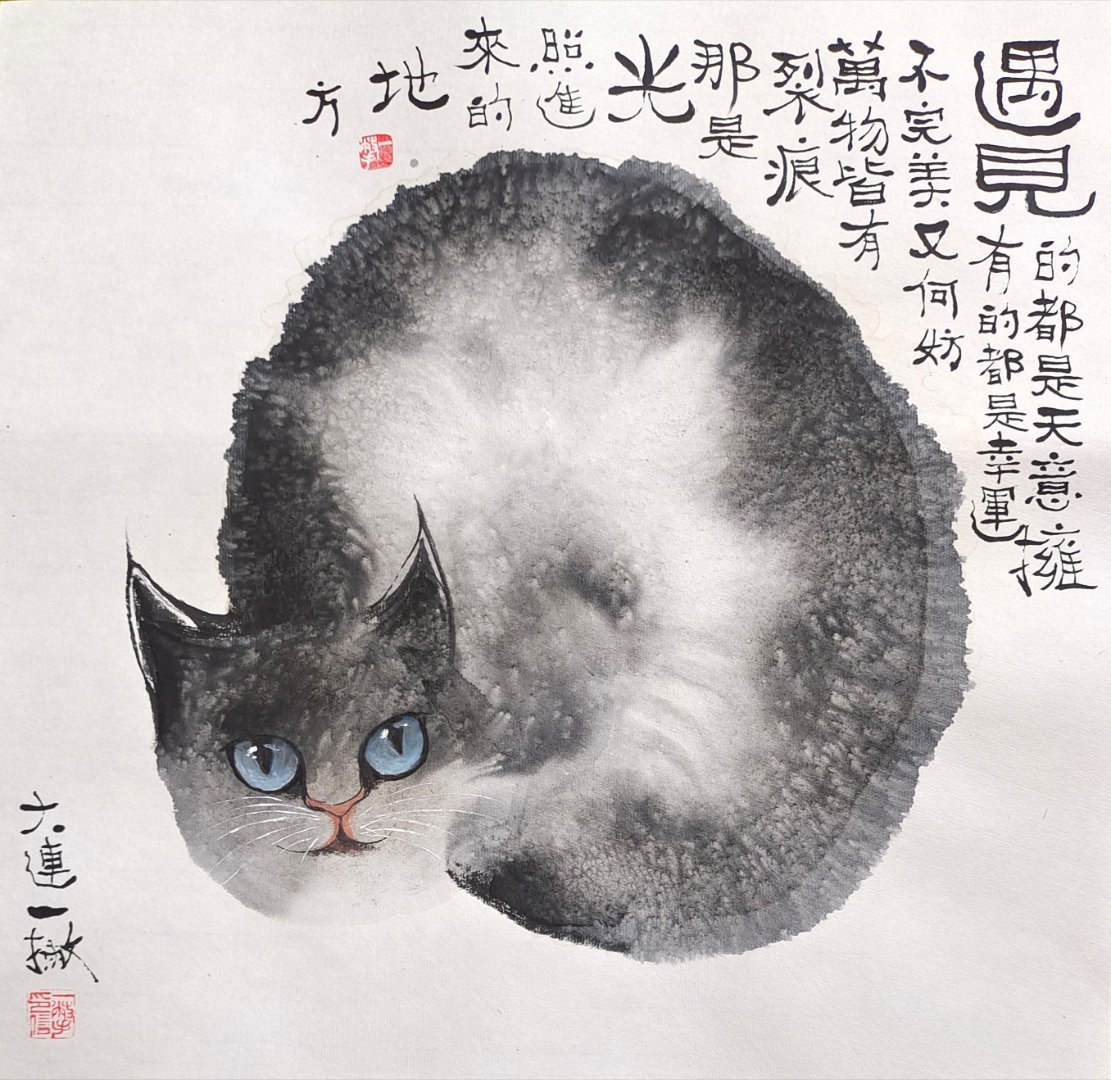 遇見
的都是天意擁
有的都是幸運
不完美又何妨
萬物皆有
裂痕
那是
光
照進
來的
地
方
大連一撇